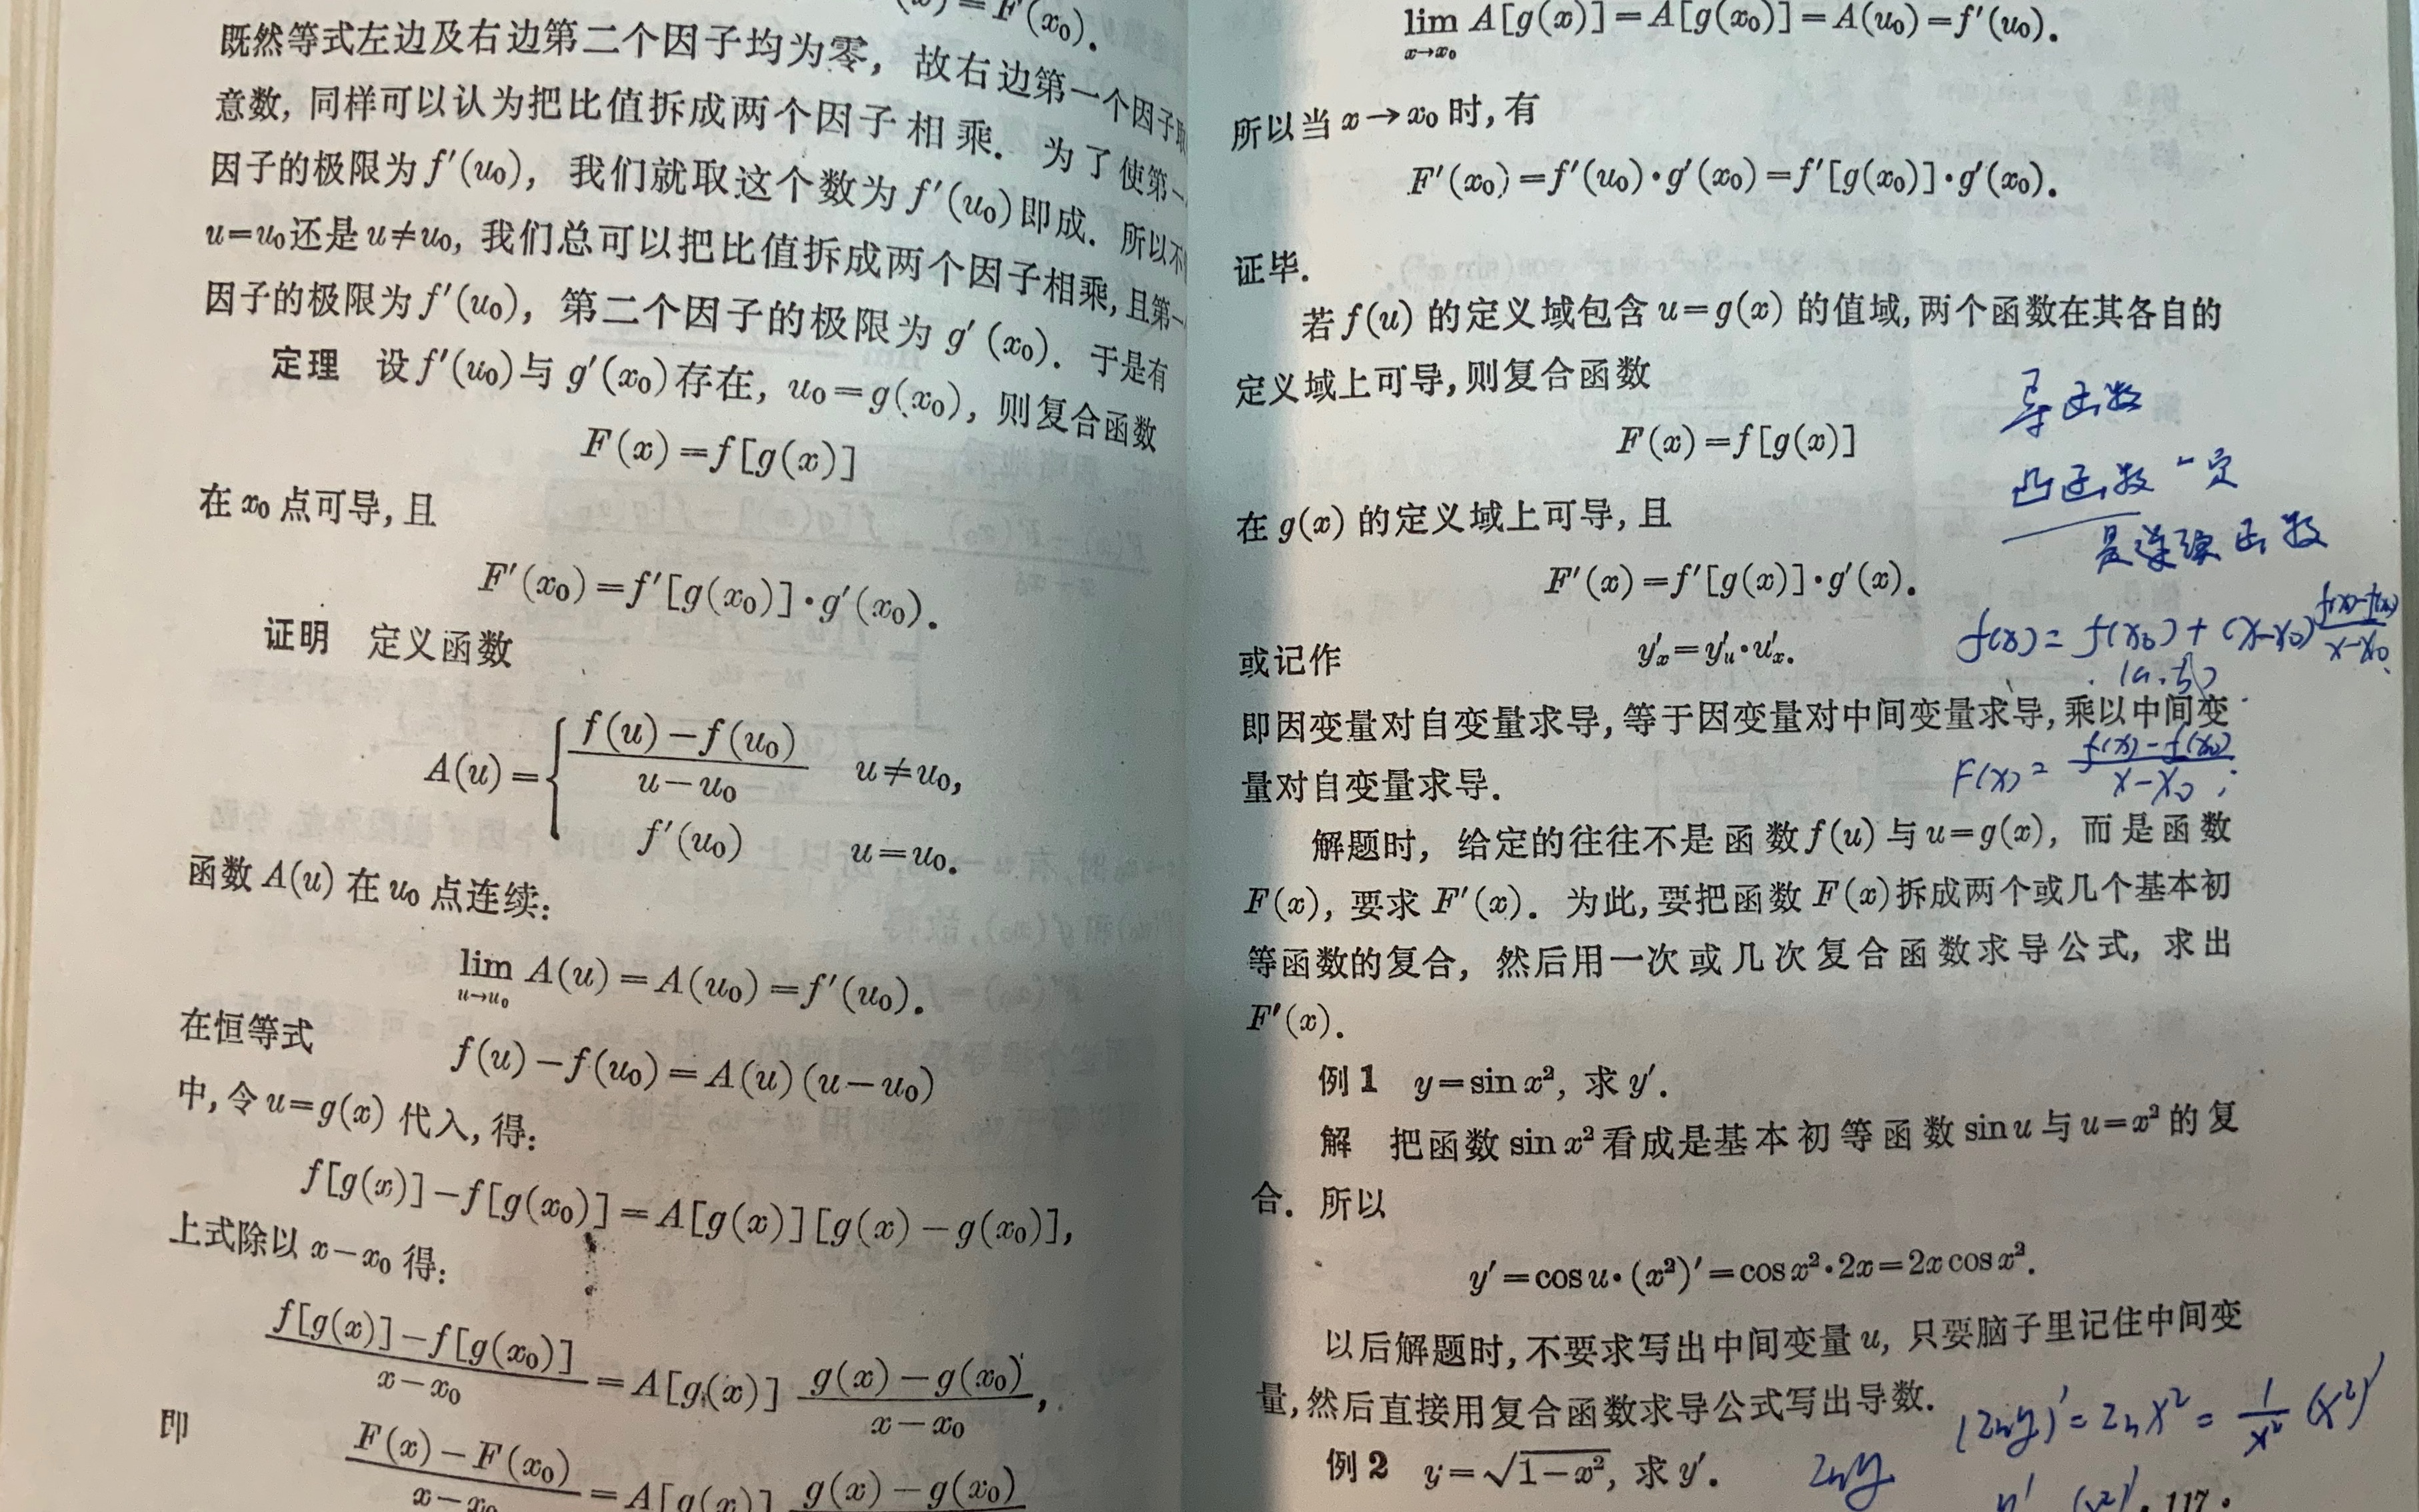 =F′(x₀).
既然等式左边及右边第二个因子均为零, 故右边第一个因子
意数, 同样可以认为把比值拆成两个因子相乘. 为了使第一
因子的极限为 f′(u₀), 我们就取这个数为 f′(u₀) 即成. 所以不
u=u₀还是 u≠u₀, 我们总可以把比值拆成两个因子相乘, 且第一
因子的极限为 f′(u₀), 第二个因子的极限为 g′(x₀). 于是有
定理 设 f′(u₀) 与 g′(x₀) 存在, u₀=g(x₀), 则复合函数
F(x)=f[g(x)]
在 x₀ 点可导, 且
F′(x₀)=f′[g(x₀)]·g′(x₀).
证明 定义函数
A(u)={ (f(u)-f(u₀))/(u-u₀) u≠u₀,
f′(u₀) u=u₀.
函数 A(u) 在 u₀ 点连续:
lim_{u→u₀} A(u)=A(u₀)=f′(u₀).
在恒等式
f(u)-f(u₀)=A(u)(u-u₀)
中, 令 u=g(x) 代入, 得:
f[g(x)]-f[g(x₀)]=A[g(x)][g(x)-g(x₀)],
上式除以 x-x₀ 得:
(f[g(x)]-f[g(x₀)])/(x-x₀)=A[g(x)] (g(x)-g(x₀))/(x-x₀),
即
(F(x)-F(x₀))/(x-x₀)=A[g(x)] g(x)-g(x₀)
lim_{x→x₀} A[g(x)]=A[g(x₀)]=A(u₀)=f′(u₀).
所以当 x→x₀ 时, 有
F′(x₀)=f′(u₀)·g′(x₀)=f′[g(x₀)]·g′(x₀).
证毕.
若 f(u) 的定义域包含 u=g(x) 的值域, 两个函数在其各自的
定义域上可导, 则复合函数
导函数
F(x)=f[g(x)]
凸函数一定
是连续函数
在 g(x) 的定义域上可导, 且
F′(x)=f′[g(x)]·g′(x).
f(x)=f(x₀)+(x-x₀) (f(x)-f(x₀))/(x-x₀)
(a,b)
或记作 y′ₓ=y′ᵤ·u′ₓ.
即因变量对自变量求导, 等于因变量对中间变量求导, 乘以中间变
量对自变量求导.
F(x)= (f(x)-f(x₀))/(x-x₀);
解题时, 给定的往往不是函数 f(u) 与 u=g(x), 而是函数
F(x), 要求 F′(x). 为此, 要把函数 F(x) 拆成两个或几个基本初
等函数的复合, 然后用一次或几次复合函数求导公式, 求出
F′(x).
例1 y=sin x², 求 y′.
解 把函数 sin x² 看成是基本初等函数 sin u 与 u=x² 的复
合. 所以
y′=cos u·(x²)′=cos x²·2x=2x cos x².
以后解题时, 不要求写出中间变量 u, 只要脑子里记住中间变
量, 然后直接用复合函数求导公式写出导数.
(lny)′=lnx²=1/x² (x²)′
例2 y=√(1-x²), 求 y′.
lny
y′ (x²)′
·117·